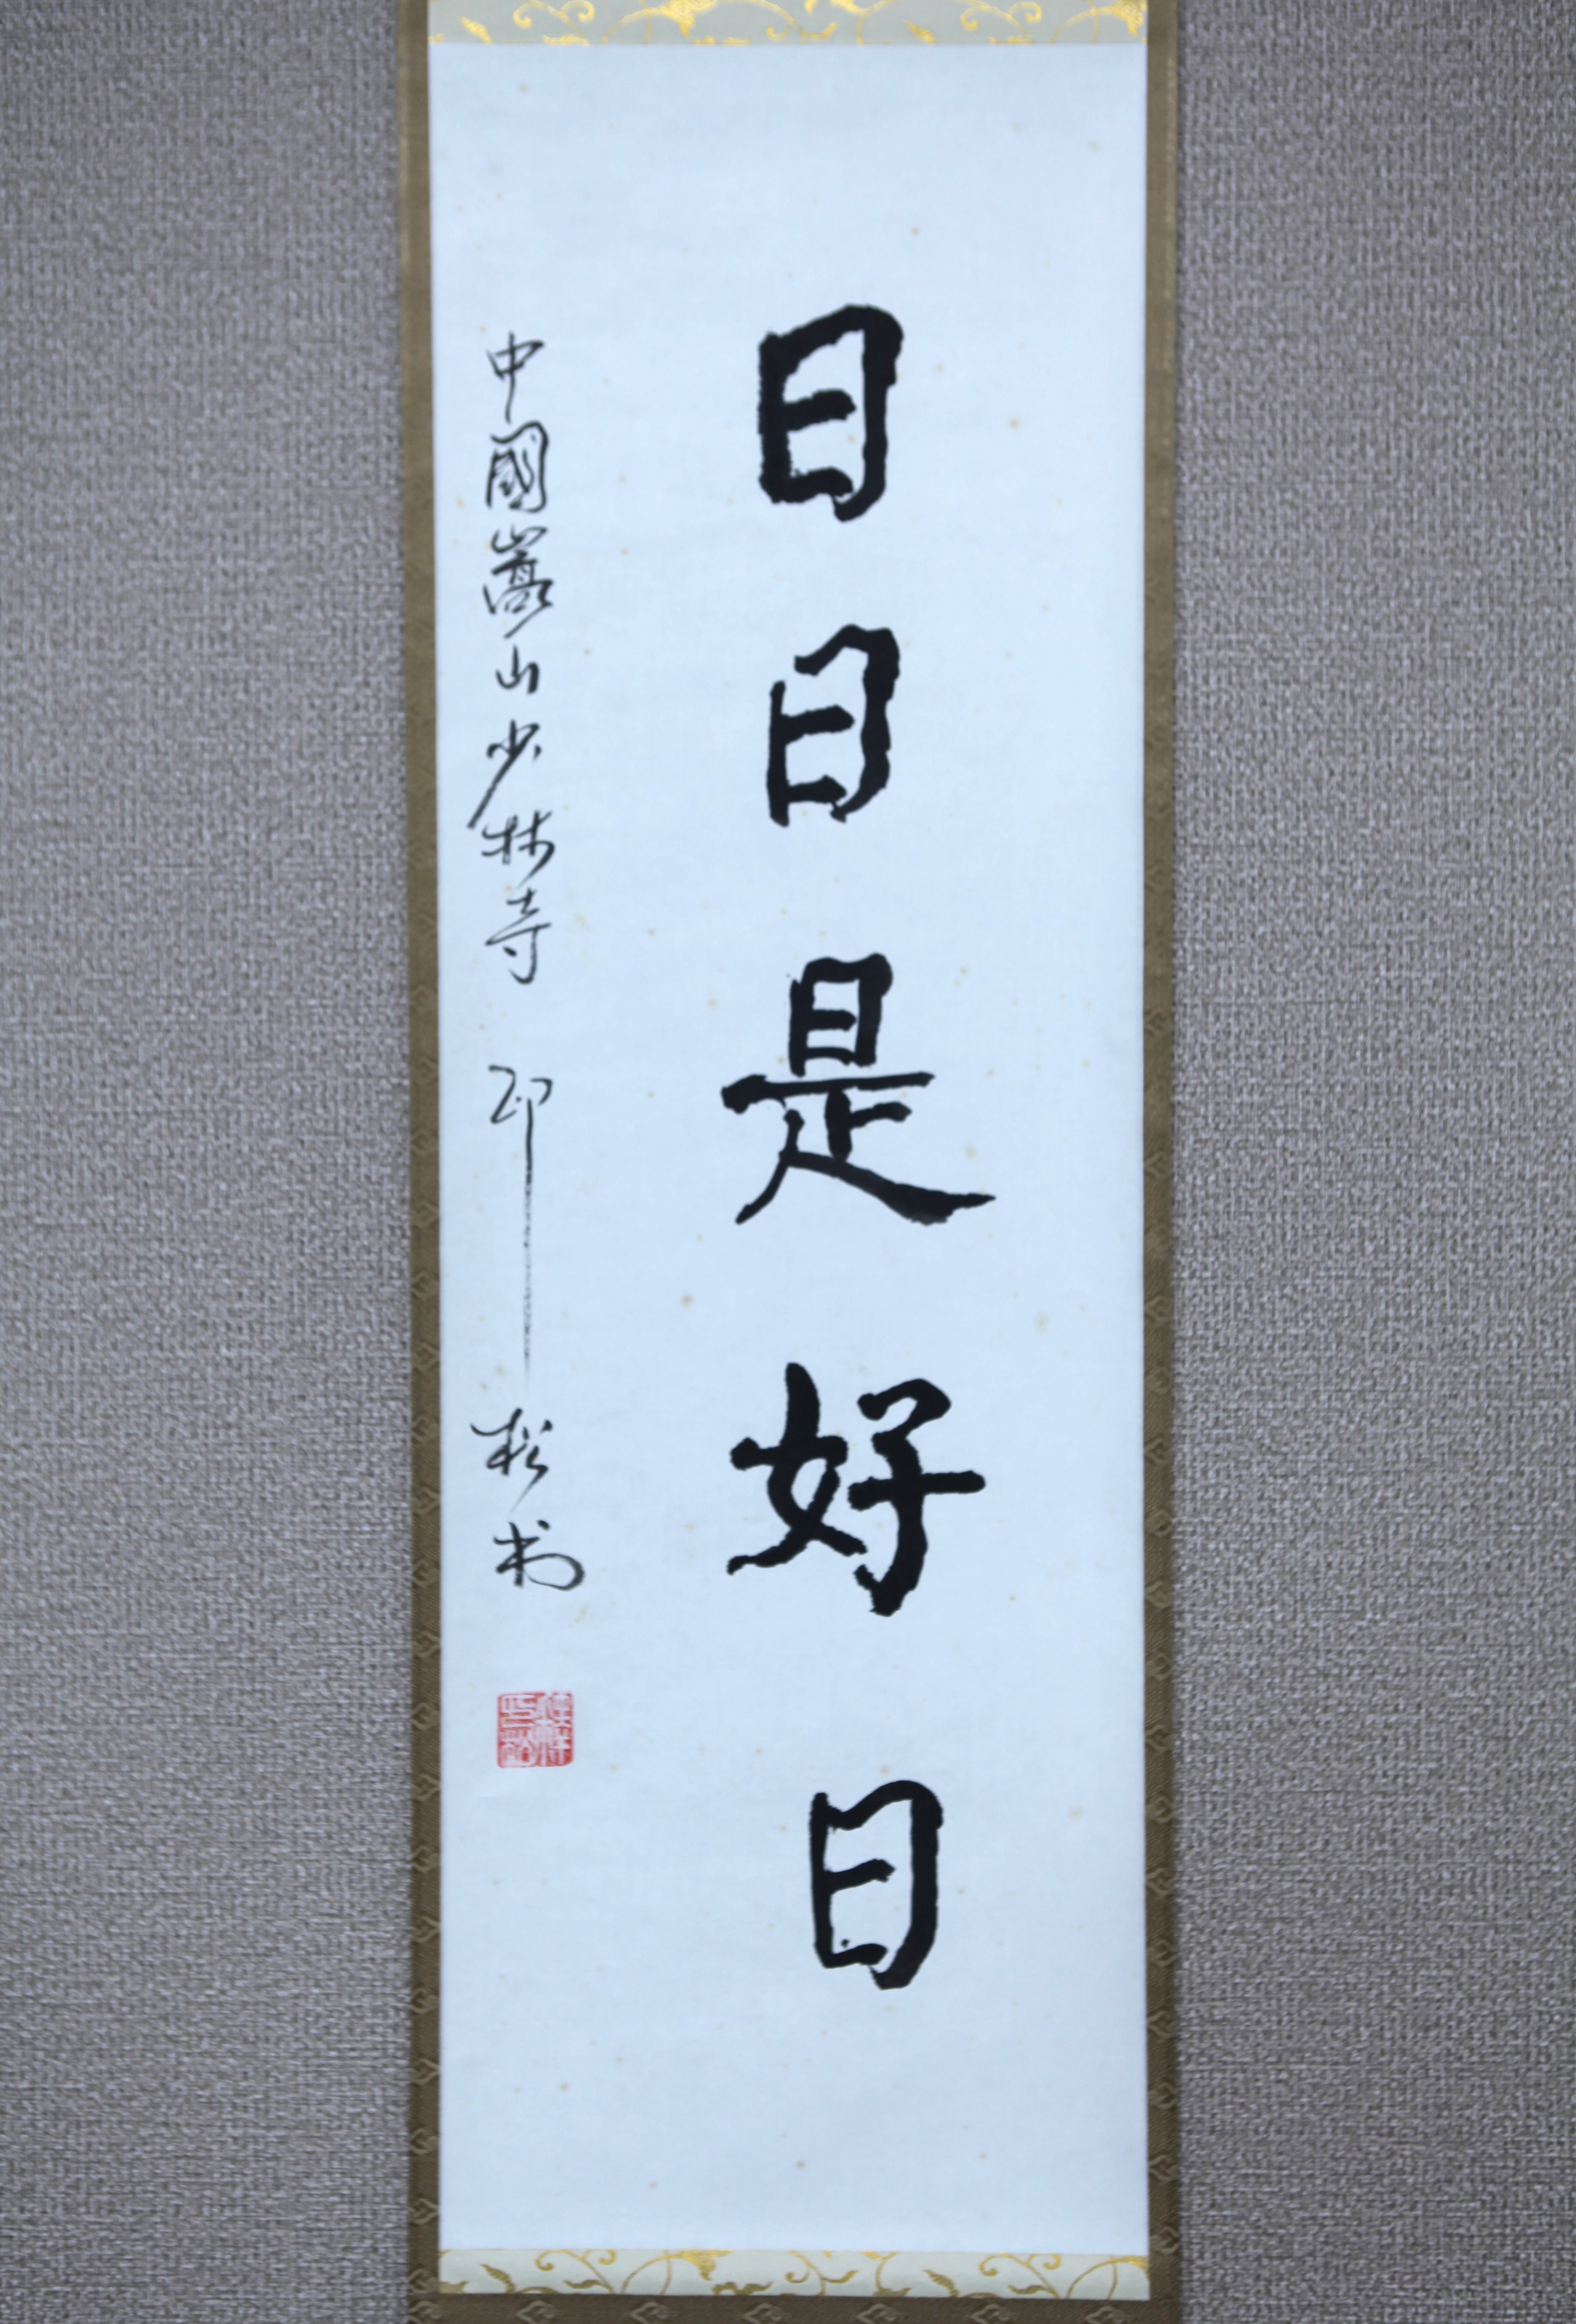 日日是好日
中國嵩山少林寺 印松书